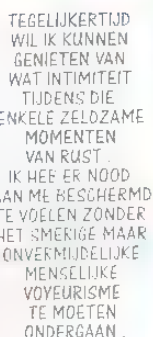 TEGELIJKERTIJD
WIL IK KUNNEN
GENIETEN VAN
WAT INTIMITEIT
TIJDENS DIE
ENKELE ZELDZAME
MOMENTEN
VAN RUST.
IK HEB ER NOOD
AAN ME BESCHERMD
TE VOELEN ZONDER
HET SMERIGE MAAR
ONVERMIJDELIJKE
MENSELIJKE
VOYEURISME
TE MOETEN
ONDERGAAN.